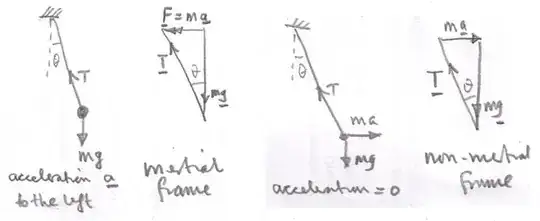 θ
T
mg
acceleration a
to the left
F = ma
T
θ
mg
inertial
frame
θ
T
ma
mg
acceleration = 0
ma
T
θ
mg
non-inertial
frame